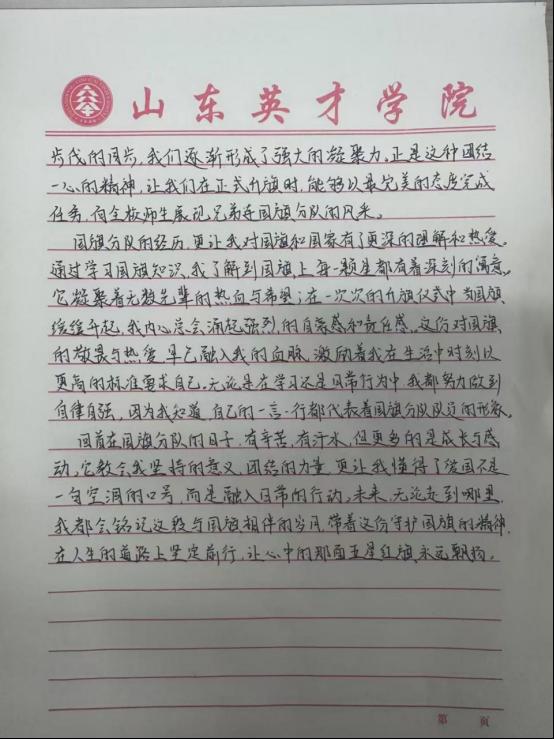 山东英才学院
步伐的同步,我们逐渐形成了强大的凝聚力。正是这种团结
一心的精神,让我们在正式升旗时,能够以最完美的态度完成
任务,向全校师生展现兄弟连国旗分队的风采。
国旗分队的经历,更让我对国旗和国家有了更深的理解和热爱。
通过学习国旗知识,我了解到国旗上每一颗星都有着深刻的寓意。
它凝聚着无数先辈的热血与希望;在一次次的升旗仪式中,当国旗
缓缓升起,我内心总会涌起强烈的自豪感和责任感,这份对国旗
的敬畏与热爱,早已融入我的血脉,激励着我在生活中时刻以
更高的标准要求自己,无论是在学习还是日常行为中,我都努力做到
自律自强,因为我知道,自己的一言一行都代表着国旗分队队员的形象。
回首在国旗分队的日子,有辛苦,有汗水,但更多的是成长与感
动,它教会我坚持的意义,团结的力量,更让我懂得了爱国不是
一句空洞的口号,而是融入日常的行动。未来,无论走到哪里,
我都会铭记这段与国旗相伴的岁月,带着这份守护国旗的精神,
在人生的道路上坚定前行,让心中的那面五星红旗,永远飘扬。
第 页